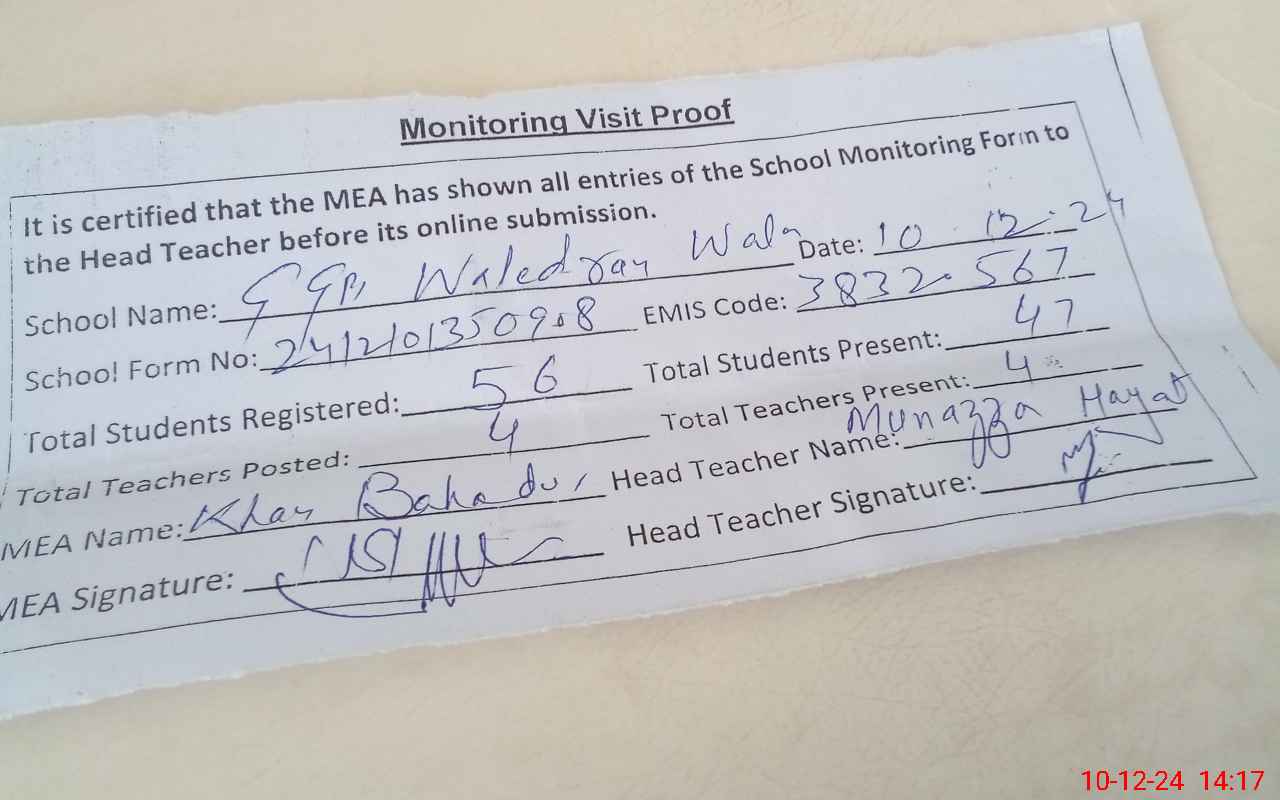 Monitoring Visit Proof
It is certified that the MEA has shown all entries of the School Monitoring Form to
the Head Teacher before its online submission.
School Name: GGPS Waledray Wala Date: 10.12.24
School Form No: 241210135090.8 EMIS Code: 3832.567
Total Students Registered: 56 Total Students Present: 47
Total Teachers Posted: 4 Total Teachers Present: 4
MEA Name: Khan Bahadur Head Teacher Name: Munazza Hayat
MEA Signature: Head Teacher Signature:
10-12-24 14:17